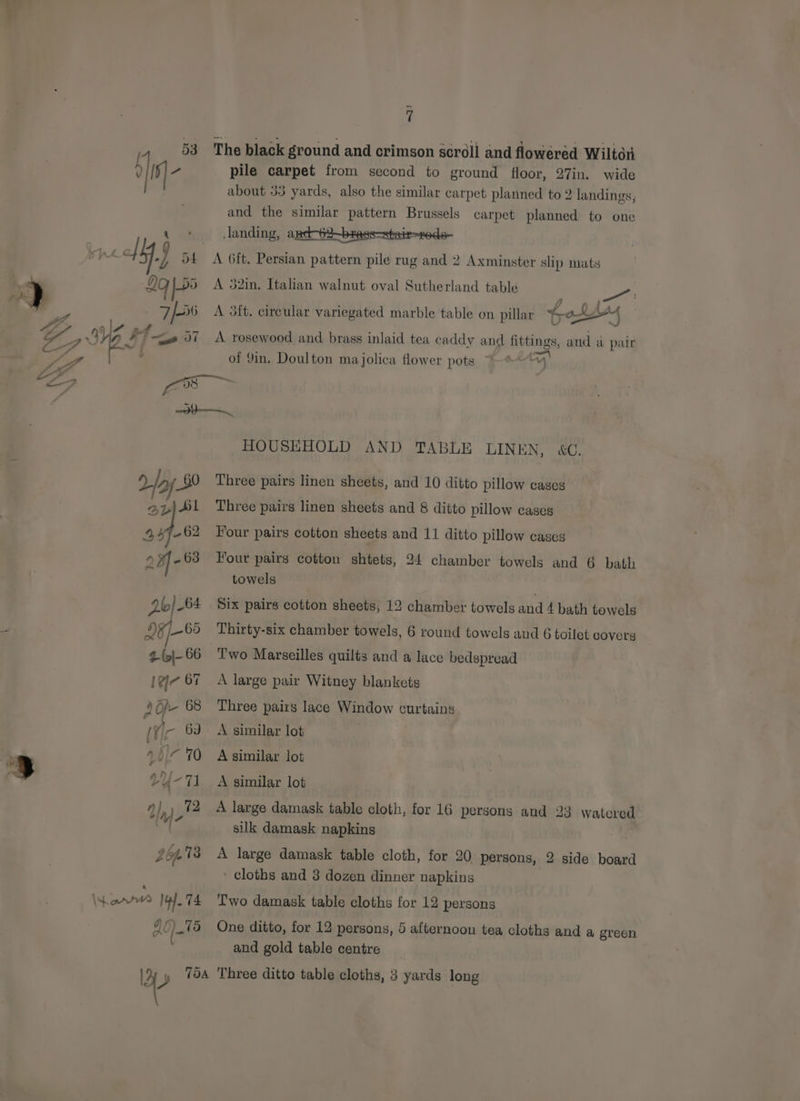 7
53 The black ground and crimson scroll and flowered Wilton
pile carpet from second to ground floor, 27in. wide
about 33 yards, also the similar carpet planned to 2 landings,
and the similar pattern Brussels carpet planned to one
landing, and 62 brass stair rods
54 A 6ft. Persian pattern pile rug and 2 Axminster slip mats
55 A 32in. Italian walnut oval Sutherland table
56 A 3ft. circular variegated marble table on pillar
57 A rosewood and brass inlaid tea caddy and fittings, and a pair
of 9in. Doulton majolica flower pots
58
59
HOUSEHOLD AND TABLE LINEN, &C.
60 Three pairs linen sheets, and 10 ditto pillow cases
61 Three pairs linen sheets and 8 ditto pillow cases
62 Four pairs cotton sheets and 11 ditto pillow cases
63 Four pairs cotton shtets, 24 chamber towels and 6 bath
towels
64 Six pairs cotton sheets, 12 chamber towels and 4 bath towels
65 Thirty-six chamber towels, 6 round towels and 6 toilet covers
66 Two Marseilles quilts and a lace bedspread
67 A large pair Witney blankets
68 Three pairs lace Window curtains
69 A similar lot
70 A similar lot
71 A similar lot
72 A large damask table cloth, for 16 persons and 23 watered
silk damask napkins
73 A large damask table cloth, for 20 persons, 2 side board
cloths and 3 dozen dinner napkins
74 Two damask table cloths for 12 persons
75 One ditto, for 12 persons, 5 afternoon tea cloths and a green
and gold table centre
75A Three ditto table cloths, 3 yards long